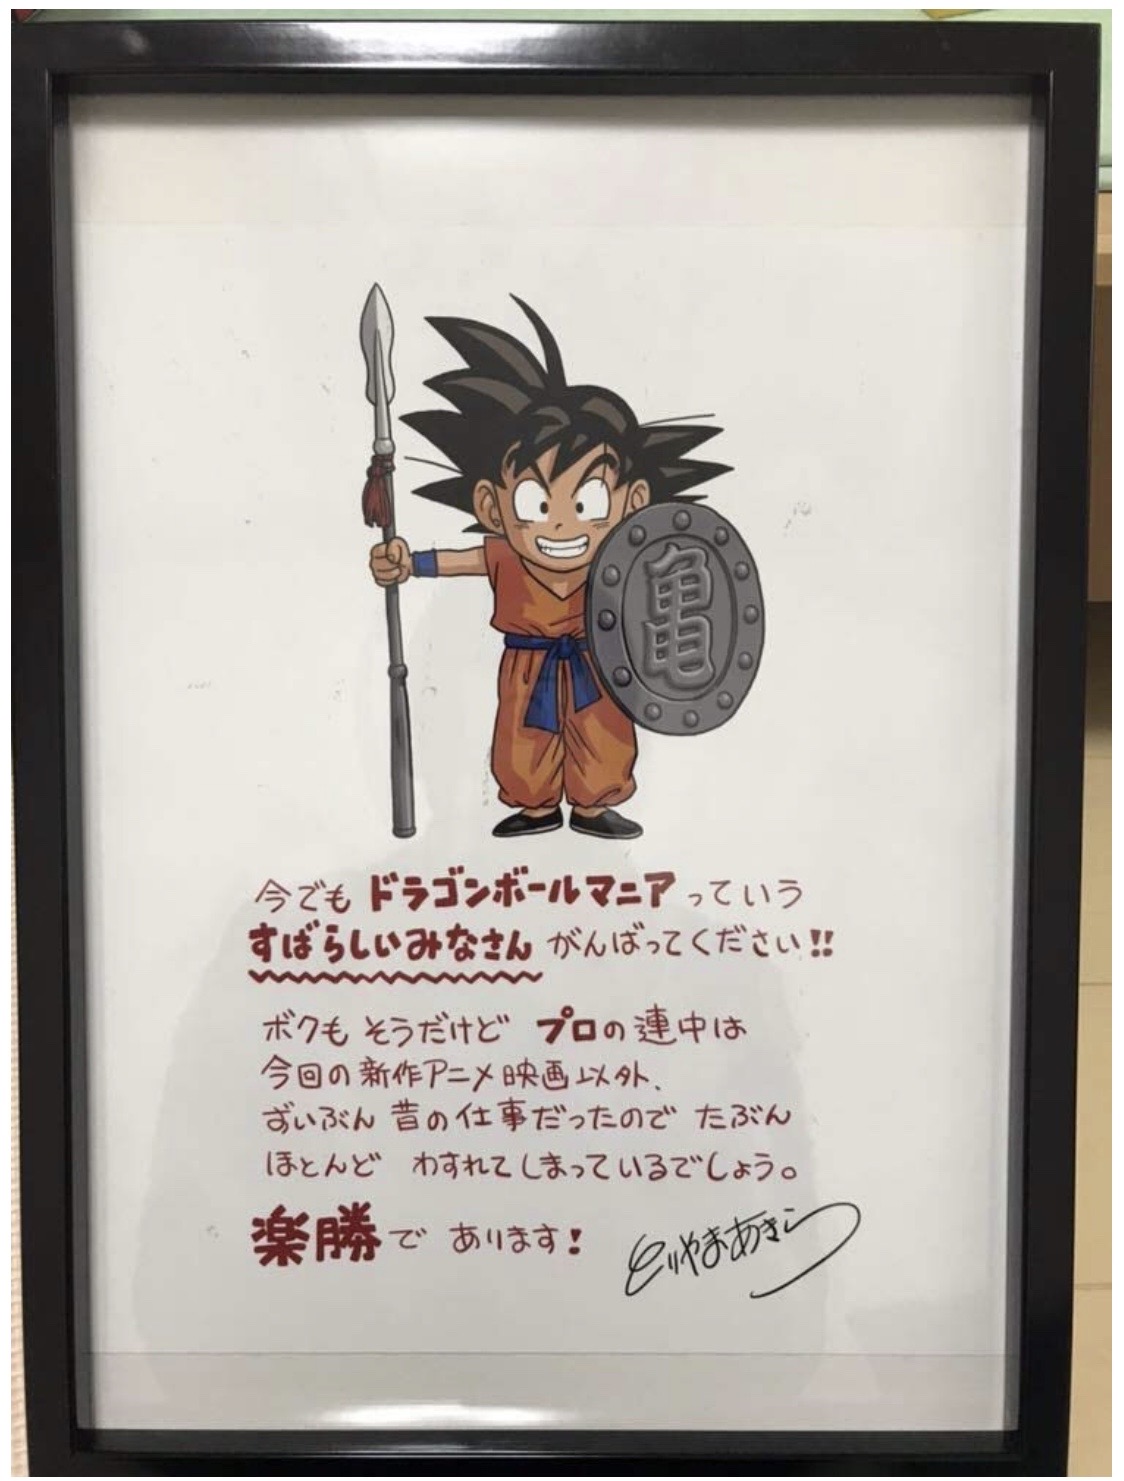 亀
今でも ドラゴンボールマニアっていう
すばらしいみなさん がんばってください!!
ボクも そうだけど プロの連中は
今回の新作アニメ映画以外、
ずいぶん 昔の仕事だったので たぶん
ほとんど わすれてしまっているでしょう。
楽勝で あります!
とりやまあきら